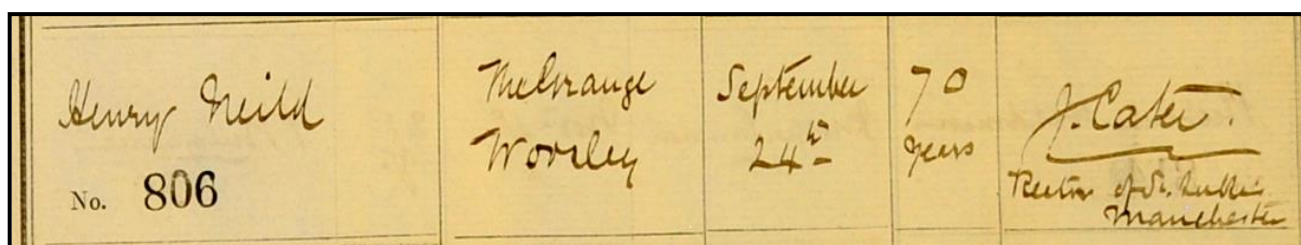 Henry Neild
No. 806
The Grange
Worsley
September
24th
70
years
J. Cater.
Rector of St. Luke's
Manchester